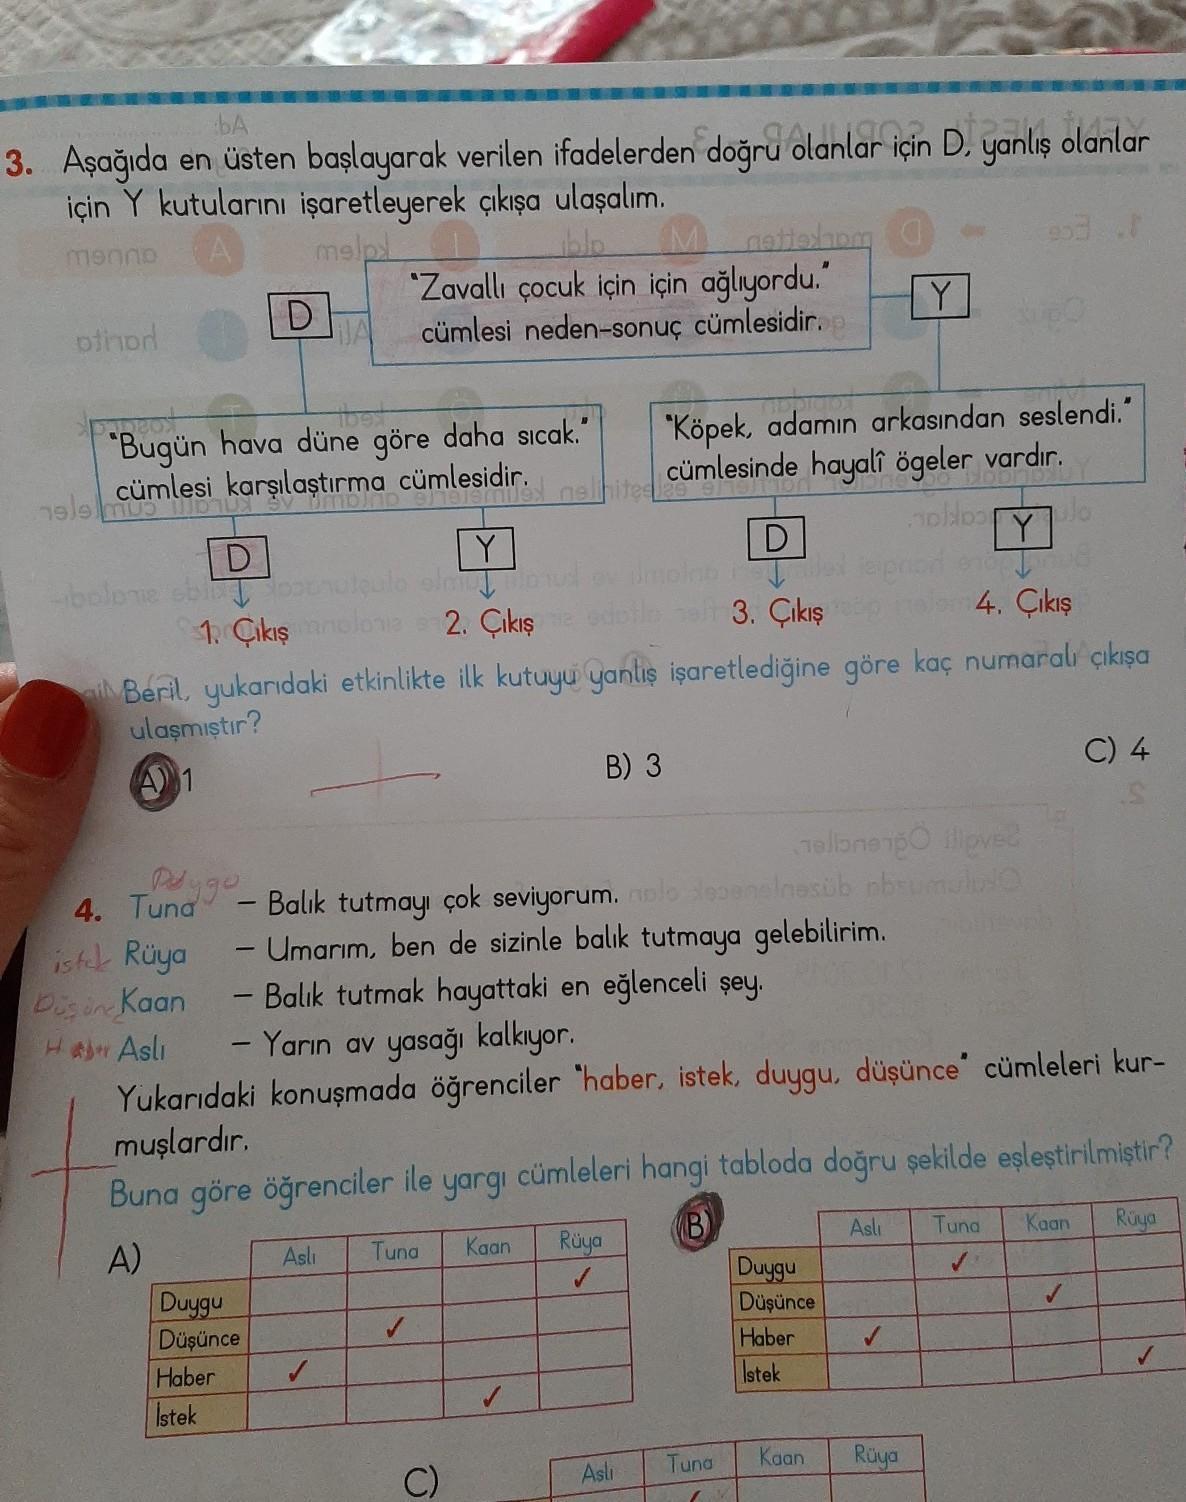 3. Aşağıda en üsten başlayarak verilen ifadelerden doğru olanlar için D, yanlış olanlar
için Y kutularını işaretleyerek çıkışa ulaşalım.
D
"Zavallı çocuk için için ağlıyordu."
cümlesi neden-sonuç cümlesidir.
Y
"Bugün hava düne göre daha sıcak."
cümlesi karşılaştırma cümlesidir.
"Köpek, adamın arkasından seslendi."
cümlesinde hayalî ögeler vardır.
D
Y
D
Y
1. Çıkış
2. Çıkış
3. Çıkış
4. Çıkış
Beril, yukarıdaki etkinlikte ilk kutuyu yanlış işaretlediğine göre kaç numaralı çıkışa
ulaşmıştır?
A) 1
B) 3
C) 4
Duygu
4. Tuna - Balık tutmayı çok seviyorum.
istek Rüya - Umarım, ben de sizinle balık tutmaya gelebilirim.
Düşünce Kaan - Balık tutmak hayattaki en eğlenceli şey.
Haber Aslı - Yarın av yasağı kalkıyor.
Yukarıdaki konuşmada öğrenciler "haber, istek, duygu, düşünce" cümleleri kur-
muşlardır.
Buna göre öğrenciler ile yargı cümleleri hangi tabloda doğru şekilde eşleştirilmiştir?
A)
Aslı Tuna Kaan Rüya
Duygu ✓
Düşünce ✓
Haber ✓
İstek ✓
B)
Aslı Tuna Kaan Rüya
Duygu ✓
Düşünce ✓
Haber ✓
İstek ✓
C)
Aslı Tuna Kaan Rüya